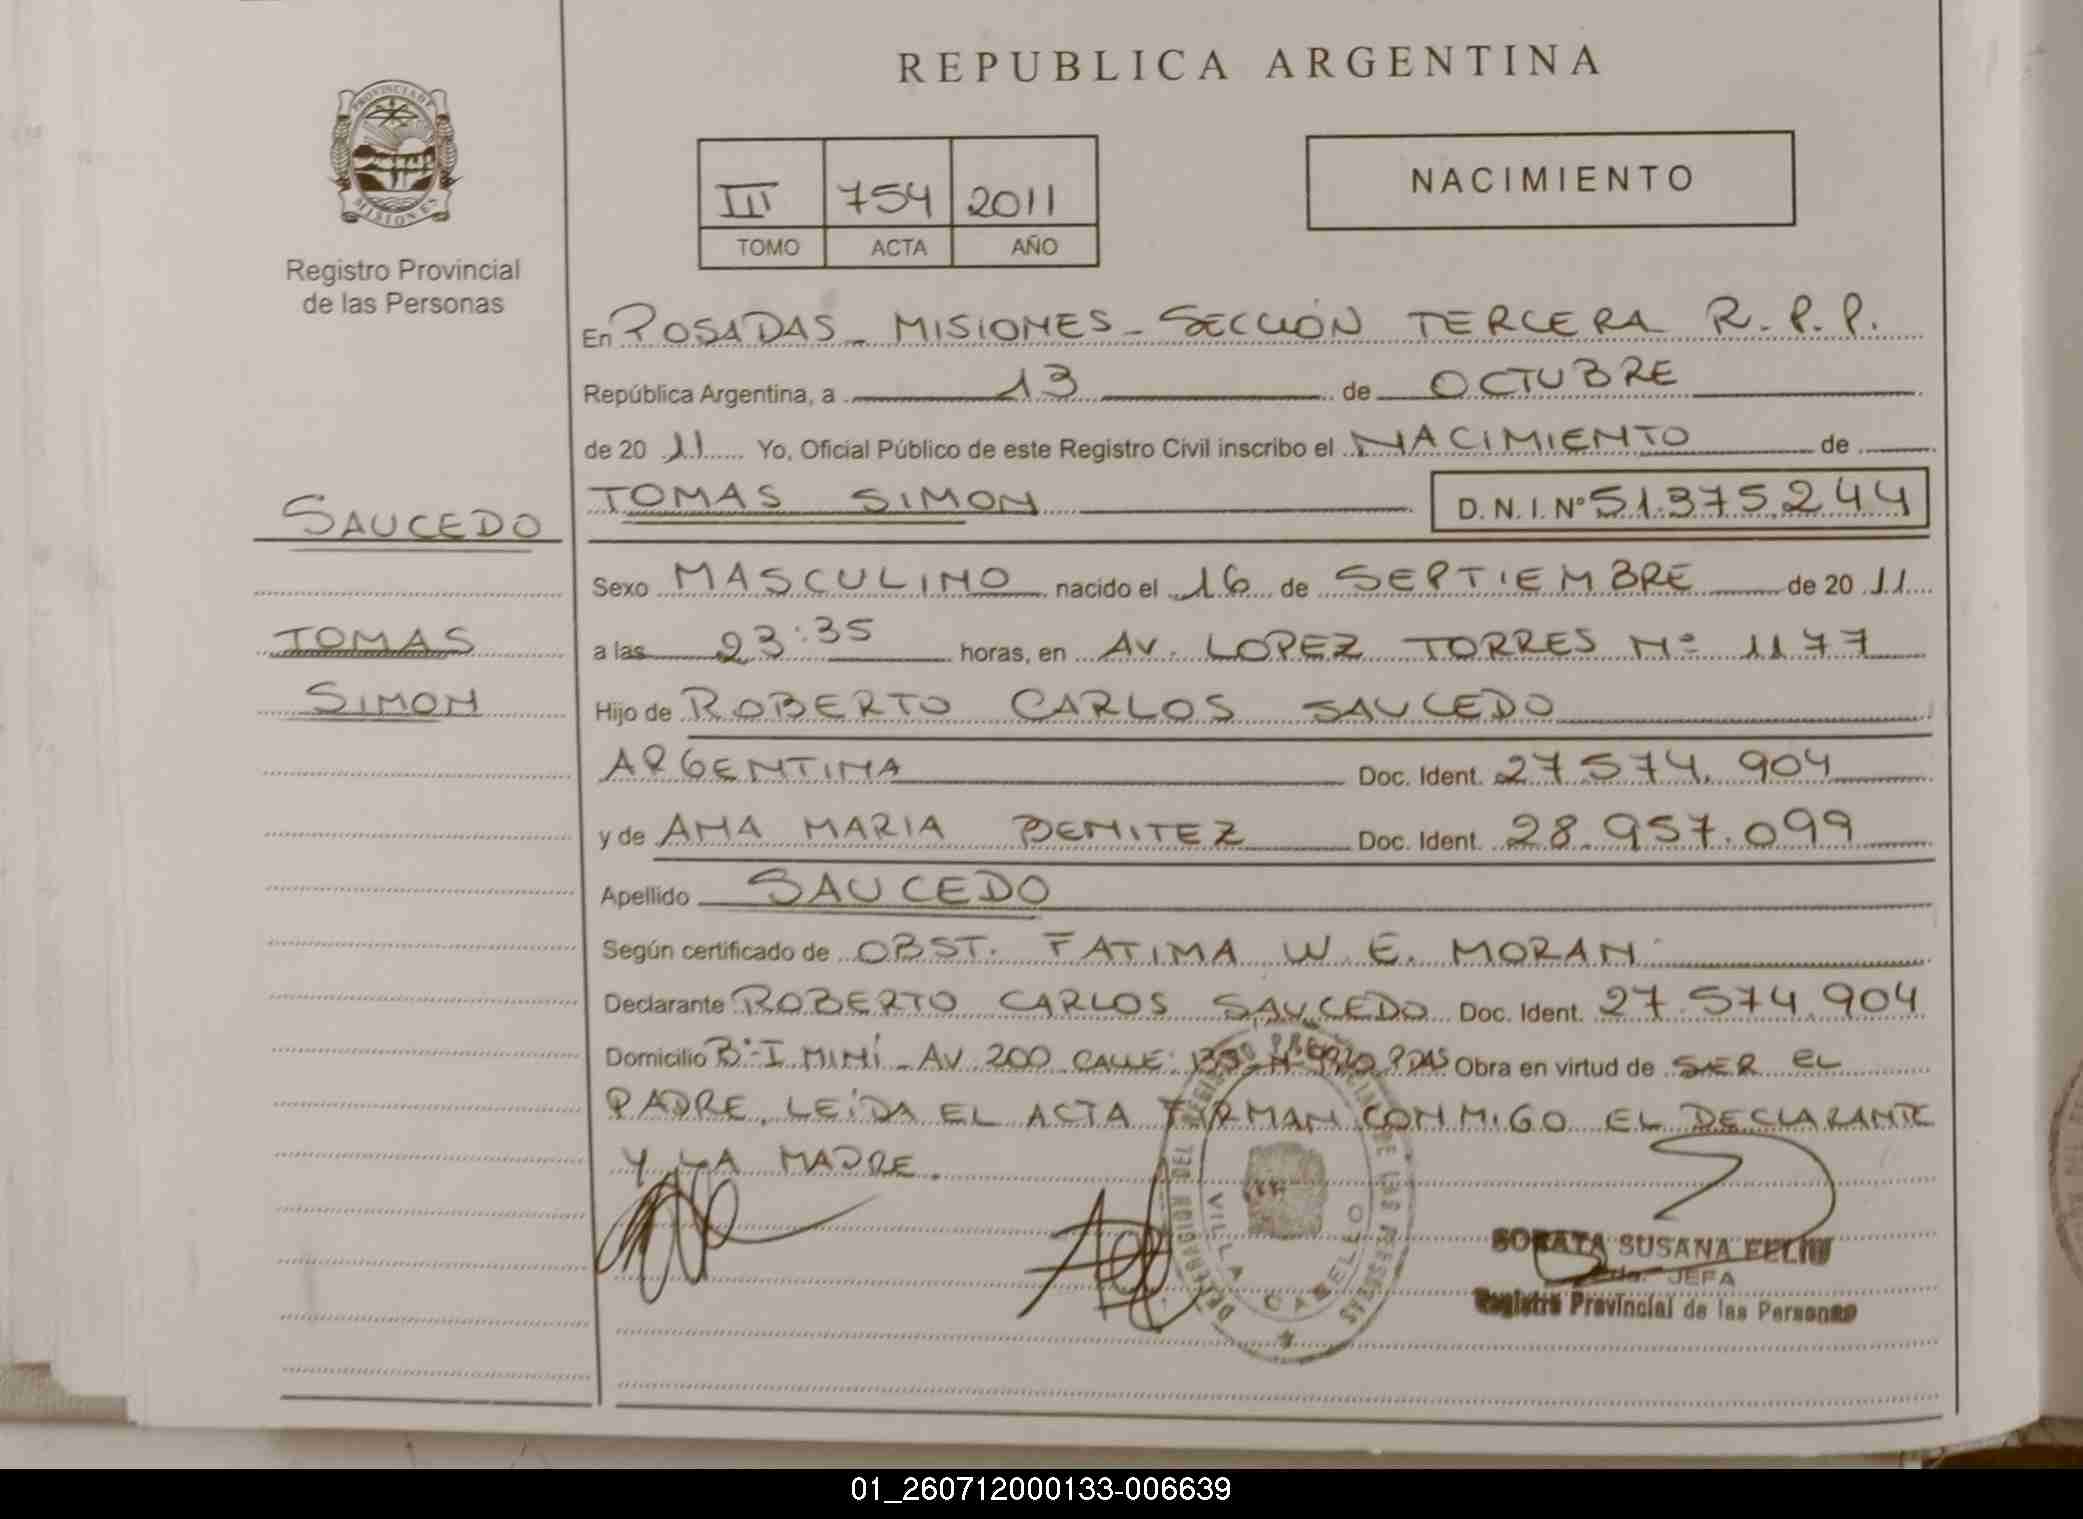 REPUBLICA ARGENTINA
PROVINCIA DE
MISIONES
Registro Provincial
de las Personas
III 754 2011
TOMO ACTA AÑO
NACIMIENTO
En POSADAS - MISIONES - SECCIÓN TERCERA R.P.P.
República Argentina, a 13 de OCTUBRE
de 20 11 Yo, Oficial Público de este Registro Civil inscribo el NACIMIENTO de
SAUCEDO
TOMAS SIMON D.N.I. Nº 51.375.244
Sexo MASCULINO nacido el 16 de SEPTIEMBRE de 20 11
TOMAS
a las 23:35 horas, en AV. LOPEZ TORRES Nº 1177
SIMON
Hijo de ROBERTO CARLOS SAUCEDO
ARGENTINA Doc. Ident. 27.574.904
y de ANA MARIA BENITEZ Doc. Ident. 28.957.099
Apellido SAUCEDO
Según certificado de OBST. FATIMA W. E. MORAN
Declarante ROBERTO CARLOS SAUCEDO Doc. Ident. 27.574.904
Domicilio Bº I MINÍ - AV 200 CALLE PDAS Obra en virtud de SER EL
PADRE, LEÍDA EL ACTA FIRMAN CONMIGO EL DECLARANTE
Y LA MADRE.
DELEGACION DEL REGISTRO PROVINCIAL DE LAS PERSONAS
VILLA CABELLO
SUSANA FELIU
JEFA
Registro Provincial de las Personas
01_260712000133-006639